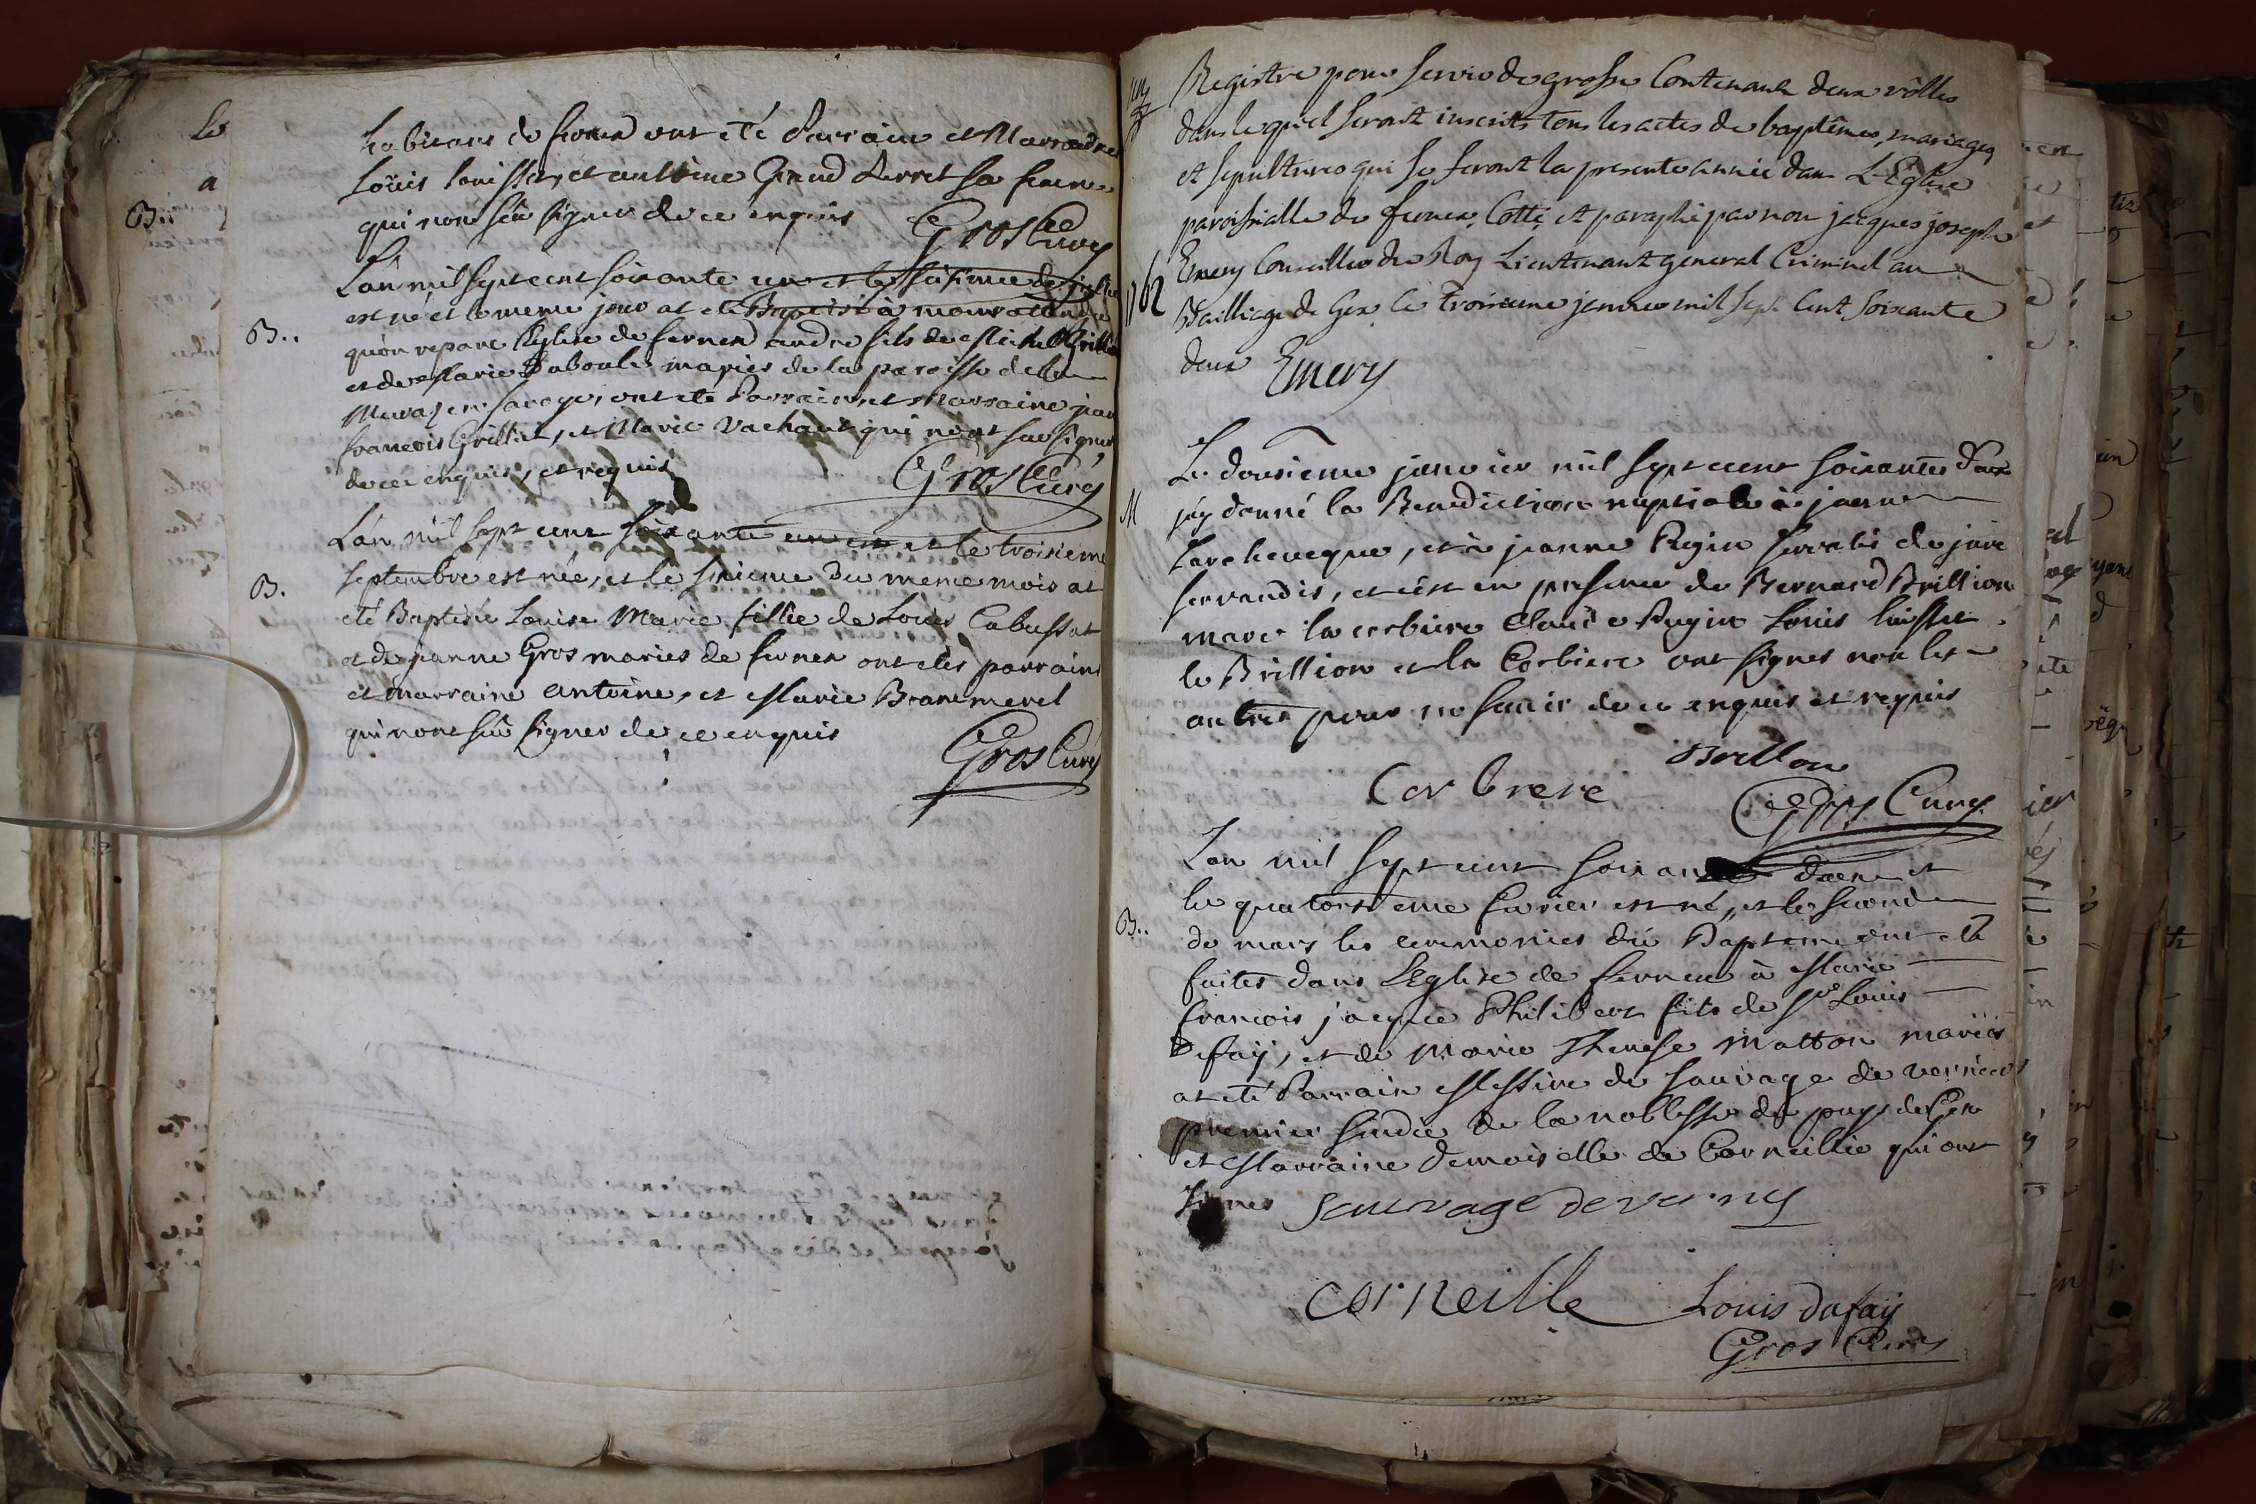 habitans de fernex ont eté Parrain et Marraine
Loüis Souisset, et anthoine Grand Perret sa femme
qui nont sçû signer de ce enquis Gros Curé
L'an mil sept cent soixante un et le sixieme de juillet
B.. est né et le meme jour at eté Baptisé à
quon repare l'eglise de fernex andre fils de Michel Grilliet
et de Marie Daboule mariés de la paroisse de
en savoye, ont eté Parrain et Marraine jean
francois Grilliet, et Marie Vachaut qui n'ont sçu signer
de ce enquis, et requis Gros Curé
L'an mil sept cent soixante un et le troisieme
B. septembre est née, et le sixieme du meme mois at
eté Baptisée Louise Marie fillie de Loüis Cabussat
et de jeanne Gros mariés de fernex ont etés parrain
et marraine antoine, et Marie Brammerel
qui nont sçû signer de ce enquis
Gros Curé
Registre pour servir de grosse Contenant deux rôlles
dans lequel seront inscrits tous les actes de baptêmes, mariages
et sepultures qui se feront la presente année dans L'Eglise
paroissialle de fernex, Cotté et paraphé par nou jacques joseph
Emery Conseiller du Roy Lieutenant general Criminel au
1762 Bailliage de Gex le troisieme janvier mil sept Cent Soixante
deux Emery
Le dousieme janvier mil sept cent soixante deux
M j'ay donné la Benediction nuptiale à
Larcheveque, et à jeanne Rugin servatis de jure
servandis, et c'est en presence de Bernard Brillion
marc la corbiere Claude Rugin Louis
le Brillion et la Corbiere ont signes non les
autres pour ne savoir de ce enquis et requis
Brillon
Corbiere Gros Curé
L'an mil sept cent soixante deux et
le quatorsieme fevrier est né, et le second
B.. de mars les ceremonies du Bapteme ont eté
faites dans L'Eglise de fernex à Marie
francois jacque Philibert fils de Sr Louis
Defaÿ, et de Marie Therese Matton mariés
at eté Parrain Messire de sauvage de verniers
premier sindic de la noblesse du pays de Gex
et Marraine Demoiselle de Corneillie qui ont
signes sauvage de verny
corneille Louis dufaÿ
Gros Curé